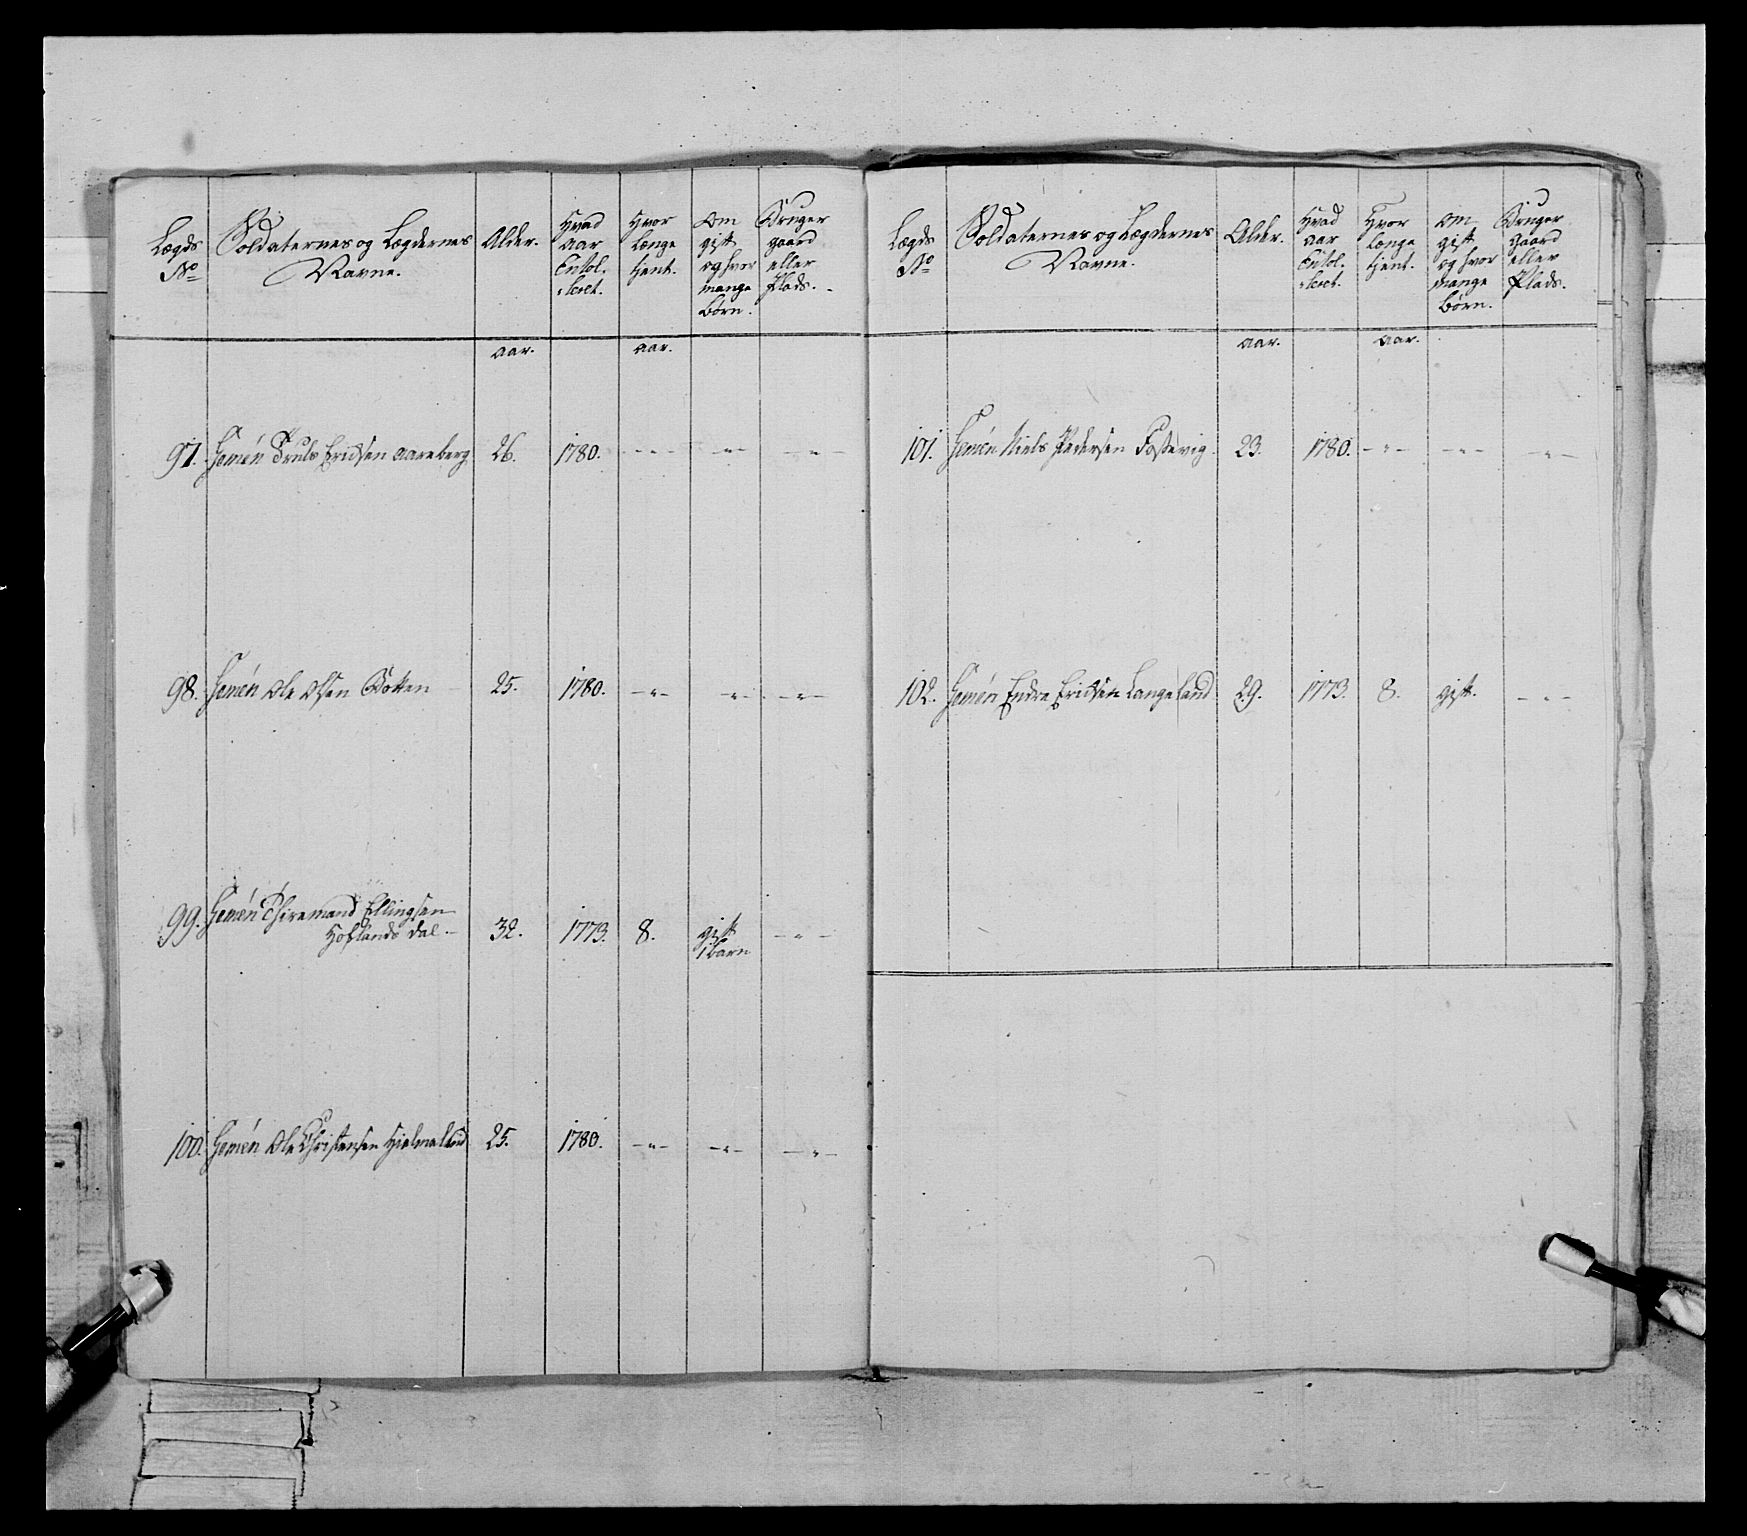 Lægds No
Soldaternes og Lægdernes Navne.
Alder.
Hvad aar Enrol-leret.
Hvor længe tjent.
Om gift og hvor mange Børn.
Bruger gaard eller Plads.
aar. aar.
97. Gemén Truls Erichsen Aareberg 26. 1780. -"- -"- -"-
98. Gemén Ole Olsen Botten 25. 1780. -"- -"- -"-
99. Gemén Ellingsen
Hoflands dal 32. 1773. 8. gift -"-
1 barn
100. Gemén Ole Christensen Hielmeland 25. 1780. -"- -"- -"-
Lægds No
Soldaternes og Lægdernes Navne.
Alder.
Hvad aar Enrol-leret.
Hvor længe tjent.
Om gift og hvor mange Børn.
Bruger gaard eller Plads.
aar. aar.
101. Gemén Niels Pedersen Fossevig 23. 1780. -"- -"- -"-
102. Gemén Endre Erichsen Langeland 29. 1773. 8. gift. -"-